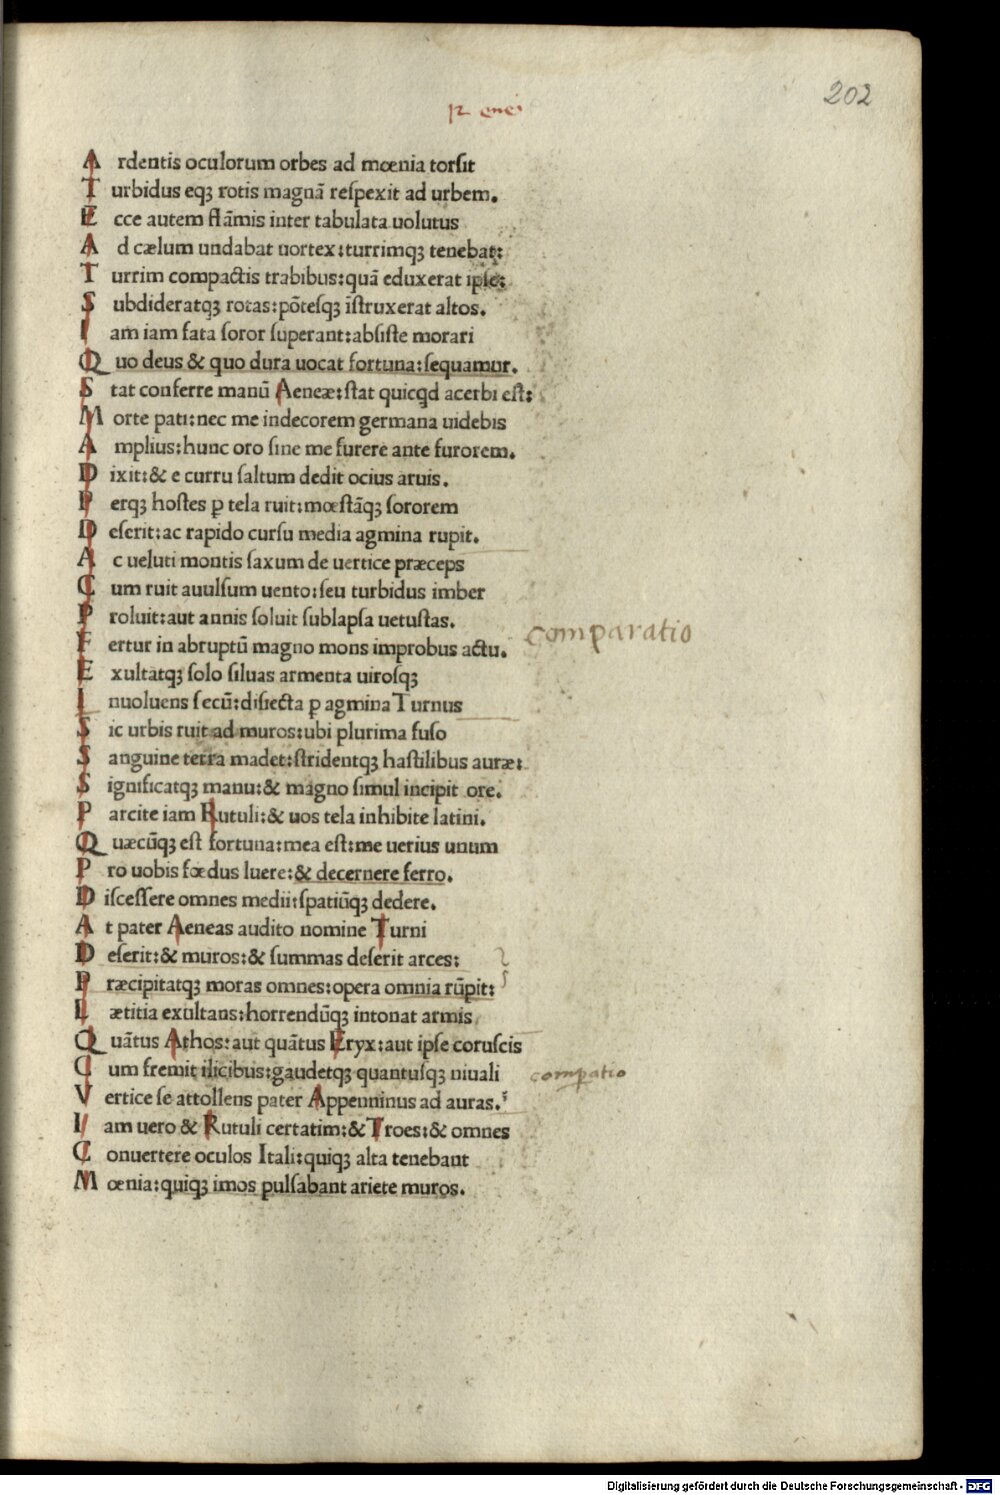 202
12 enei
A rdentis oculorum orbes ad mœnia torſit
T urbidus eqꝫ rotis magnā reſpexit ad urbem.
E cce autem flāmis inter tabulata uolutus
A d cælum undabat uortex:turrimqꝫ tenebat:
T urrim compactis trabibus:quā eduxerat ipſe:
S ubdideratqꝫ rotas:pōteſqꝫ īſtruxerat altos.
I am iam fata ſoror ſuperant:abſiſte morari
Q uo deus & quo dura uocat fortuna:ſequamur.
S tat conferre manū Aeneæ:ſtat quicꝗd acerbi eſt:
M orte pati:nec me indecorem germana uidebis
A mplius:hunc oro ſine me furere ante furorem.
D ixit:& e curru ſaltum dedit ocius aruis.
P erqꝫ hoſtes ꝑ tela ruit:mœſtāqꝫ ſororem
D eſerit:ac rapido curſu media agmina rupit.
A c ueluti montis ſaxum de uertice præceps
C um ruit auulſum uento:ſeu turbidus imber
P roluit:aut annis ſoluit ſublapſa uetuſtas.
comparatio
F ertur in abruptū magno mons improbus actu.
E xultatqꝫ ſolo ſiluas armenta uiroſqꝫ
I nuoluens ſecū:diſiecta ꝑ agmina Turnus
S ic urbis ruit ad muros:ubi plurima fuſo
S anguine terra madet:ſtridentqꝫ haſtilibus auræ:
S ignificatqꝫ manu:& magno ſimul incipit ore.
P arcite iam Rutuli:& uos tela inhibite latini.
Q uæcūqꝫ eſt fortuna:mea eſt:me uerius unum
P ro uobis fœdus luere:& decernere ferro.
D iſceſſere omnes medii:ſpatiūqꝫ dedere.
A t pater Aeneas audito nomine Turni
D eſerit:& muros:& ſummas deſerit arces:
P ræcipitatqꝫ moras omnes:opera omnia rūpit:
L ætitia exultans:horrendūqꝫ intonat armis
Q uātus Athos:aut quātus Eryx:aut ipſe coruſcis
C um fremit ilicibus:gaudetqꝫ quantuſqꝫ niuali
comꝑatio
V ertice ſe attollens pater Appenninus ad auras.
I am uero & Rutuli certatim:& Troes:& omnes
C onuertere oculos Itali:quiqꝫ alta tenebant
M œnia:quiqꝫ imos pulſabant ariete muros.
Digitalisierung gefördert durch die Deutsche Forschungsgemeinschaft - DFG